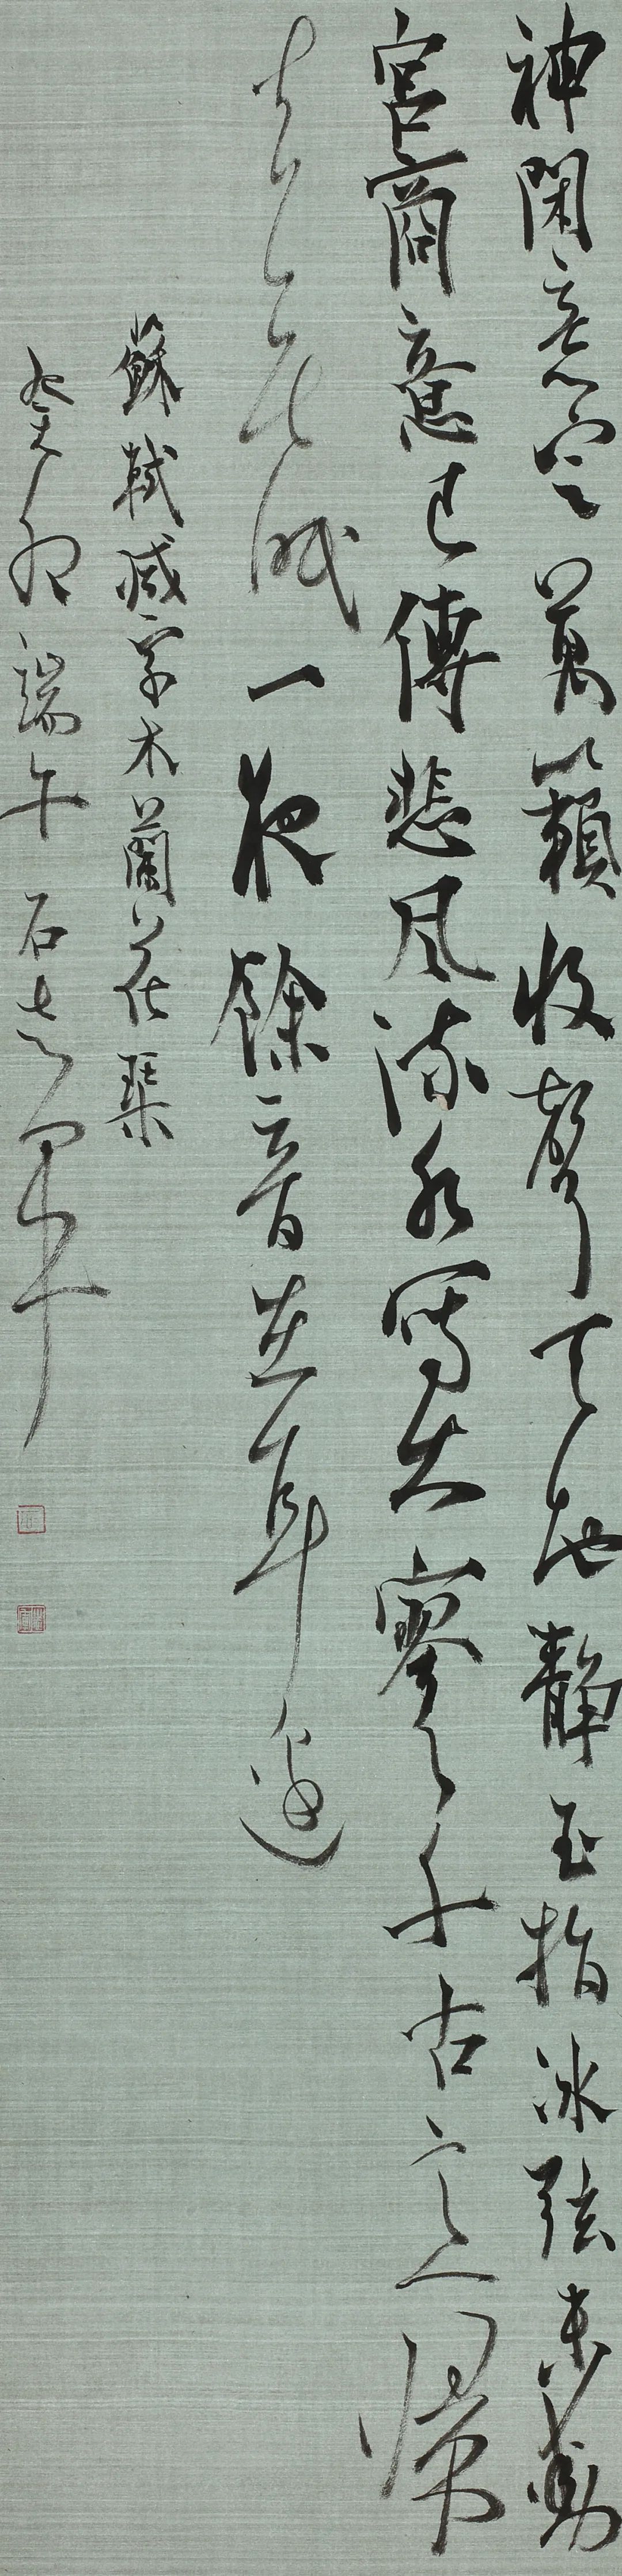 神閑意定萬籟收聲天地靜玉指冰弦未動
宮商意已傳悲風流水寫出寥寥千古意歸
去無眠一夜餘音在耳邊
蘇軾減字木蘭花琴
癸卯端午石